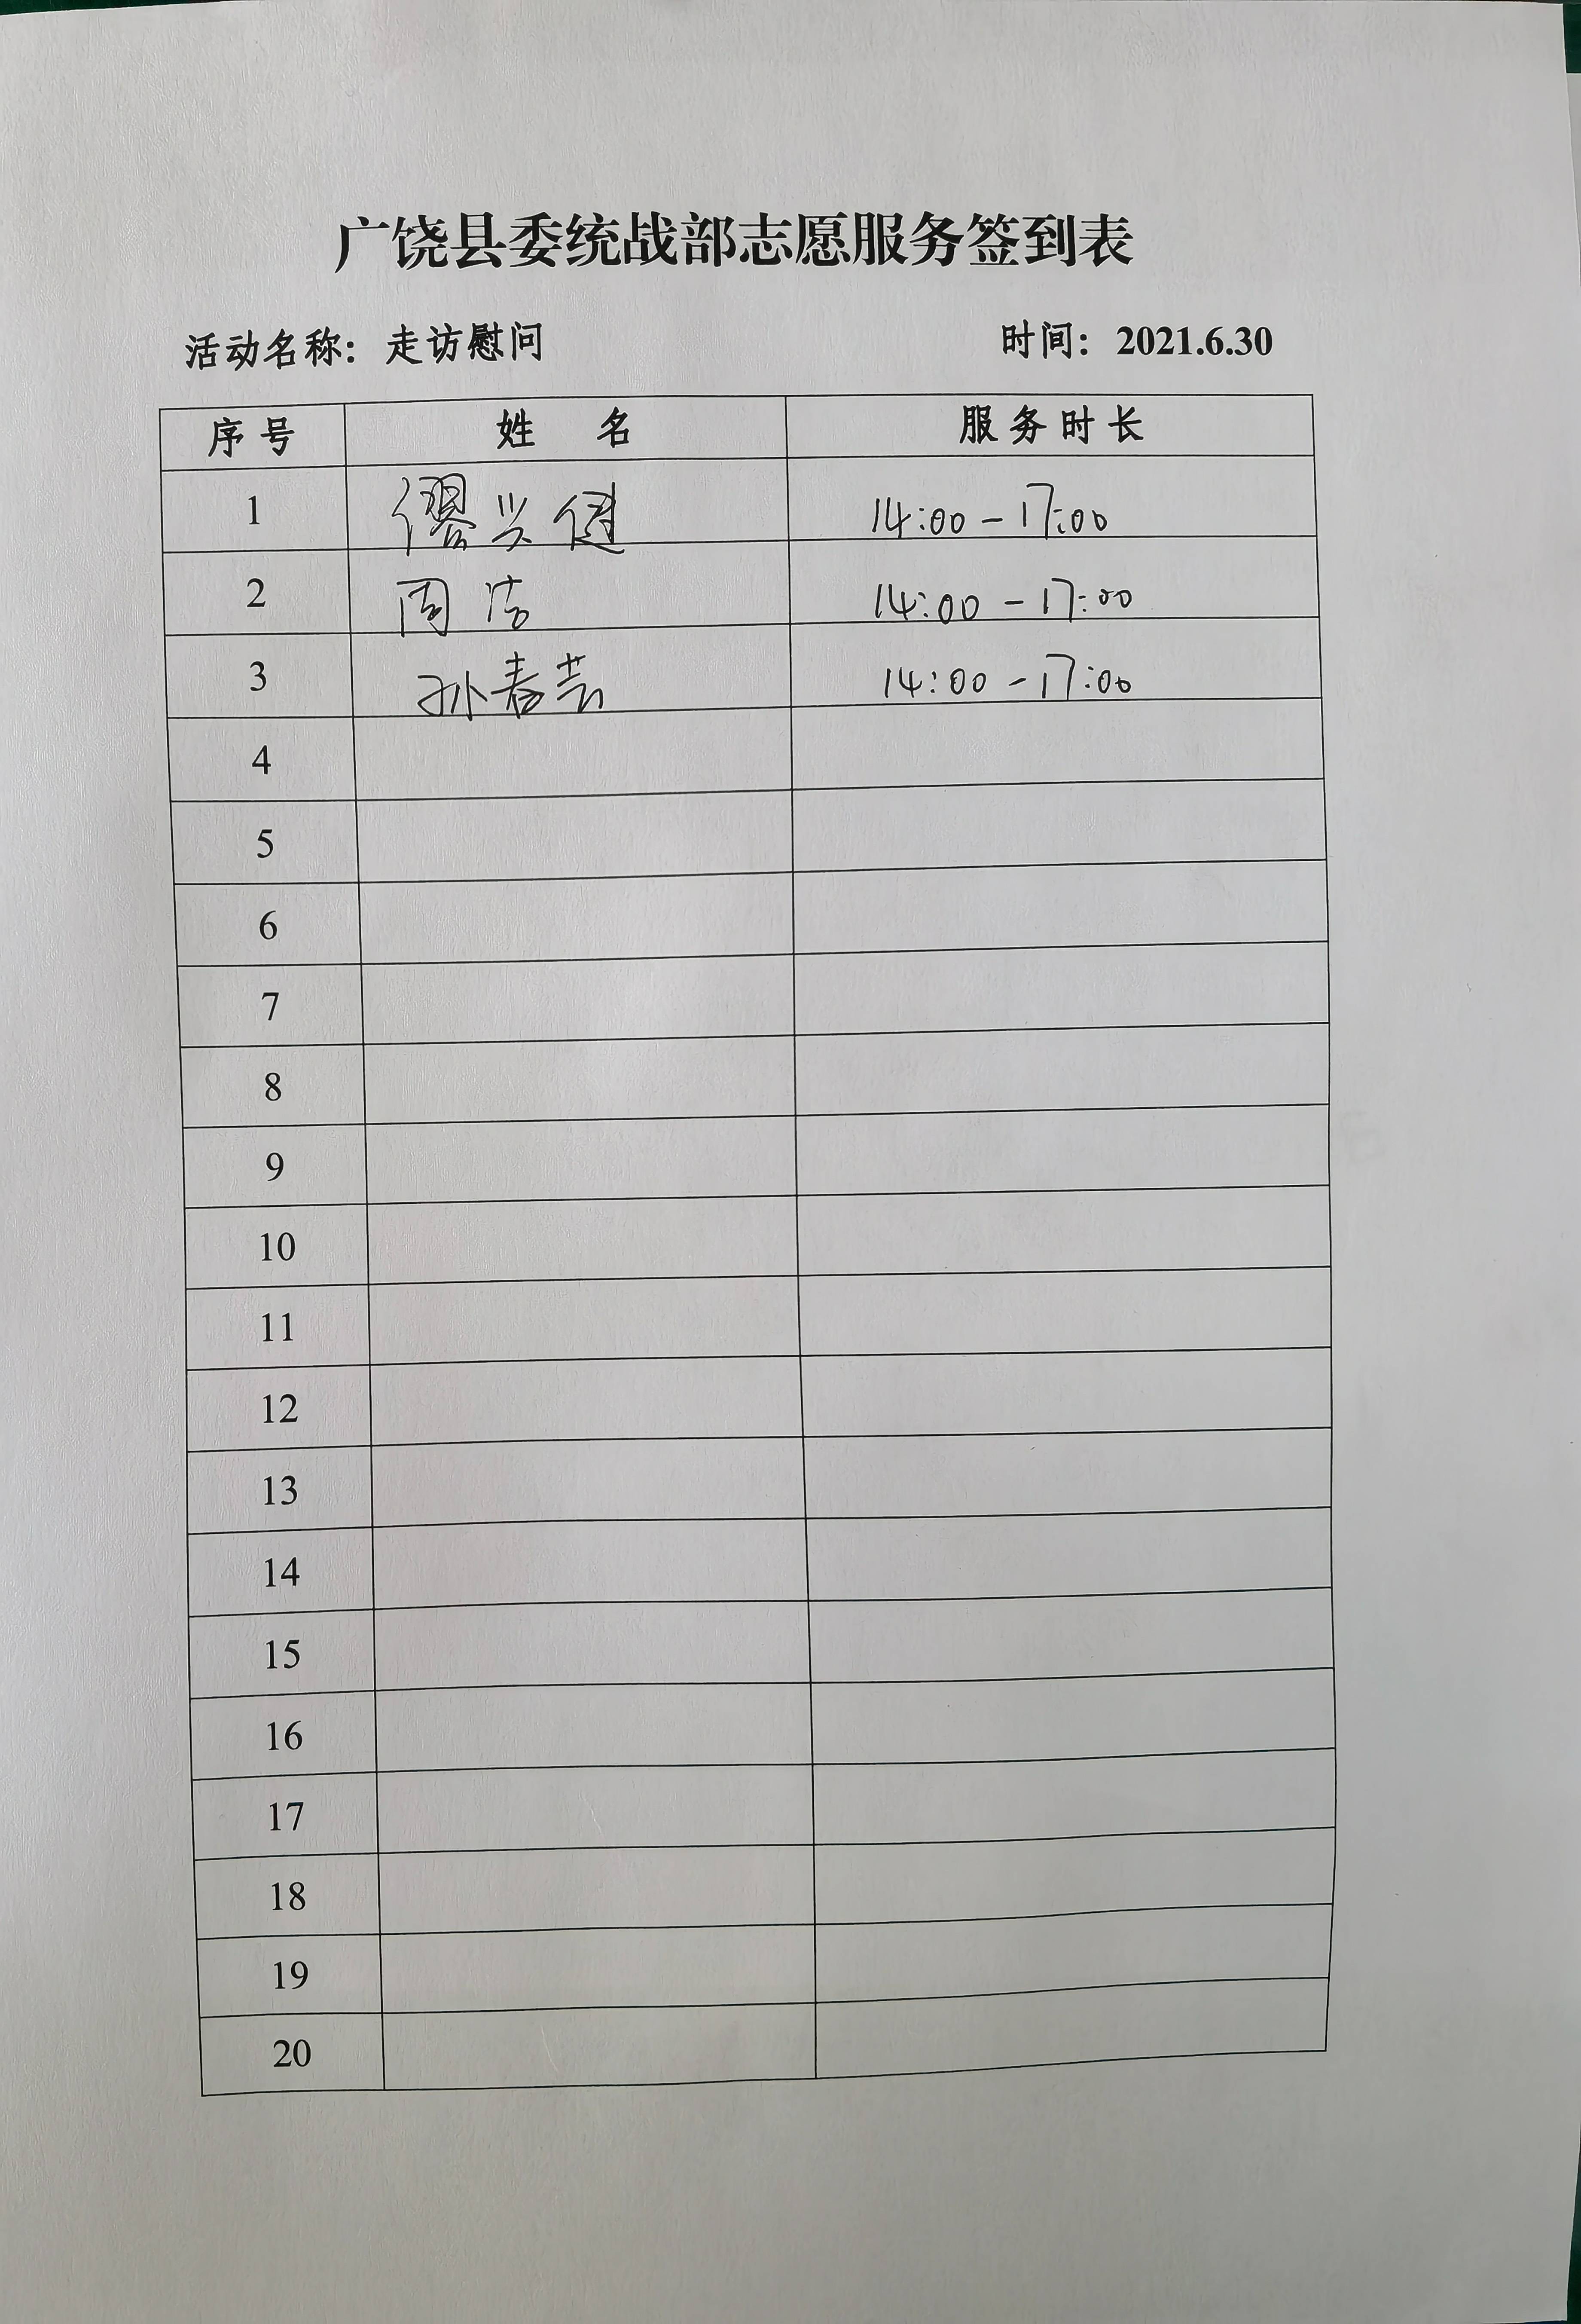 广饶县委统战部志愿服务签到表
活动名称：走访慰问 时间：2021.6.30
序号 姓 名 服务时长
1 兴健 14:00-17:00
2 周洁 14:00-17:00
3 孙春芸 14:00-17:00
4
5
6
7
8
9
10
11
12
13
14
15
16
17
18
19
20